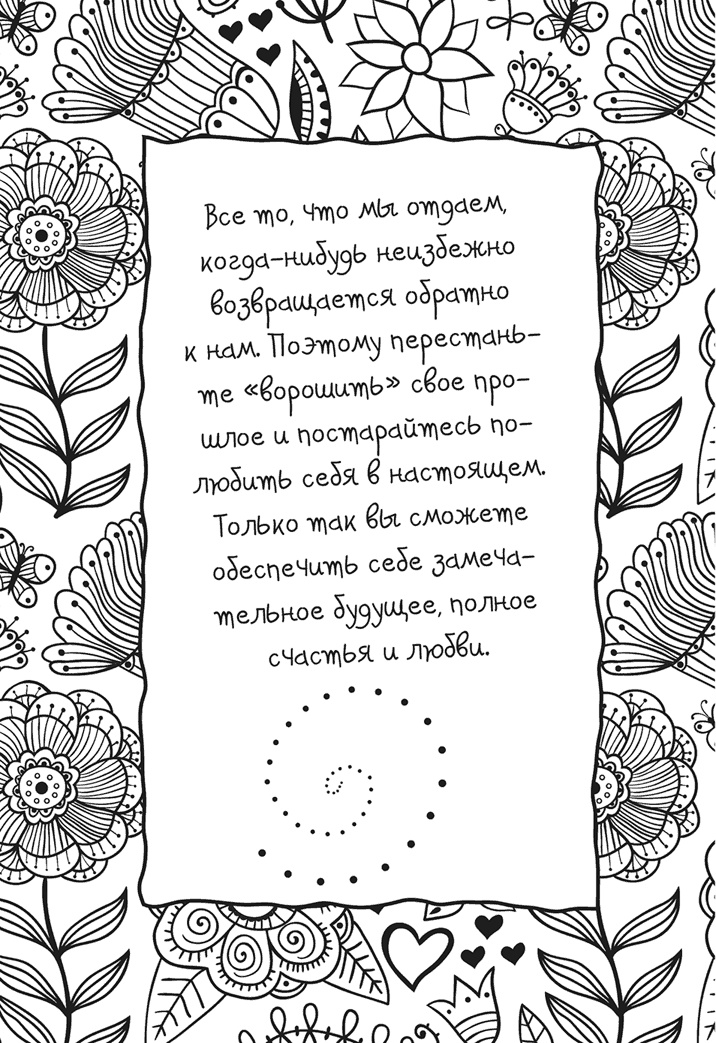 Все то, что мы отдаем,
когда-нибудь неизбежно
возвращается обратно
к нам. Поэтому перестань-
те «ворошить» свое про-
шлое и постарайтесь по-
любить себя в настоящем.
Только так вы сможете
обеспечить себе замеча-
тельное будущее, полное
счастья и любви.